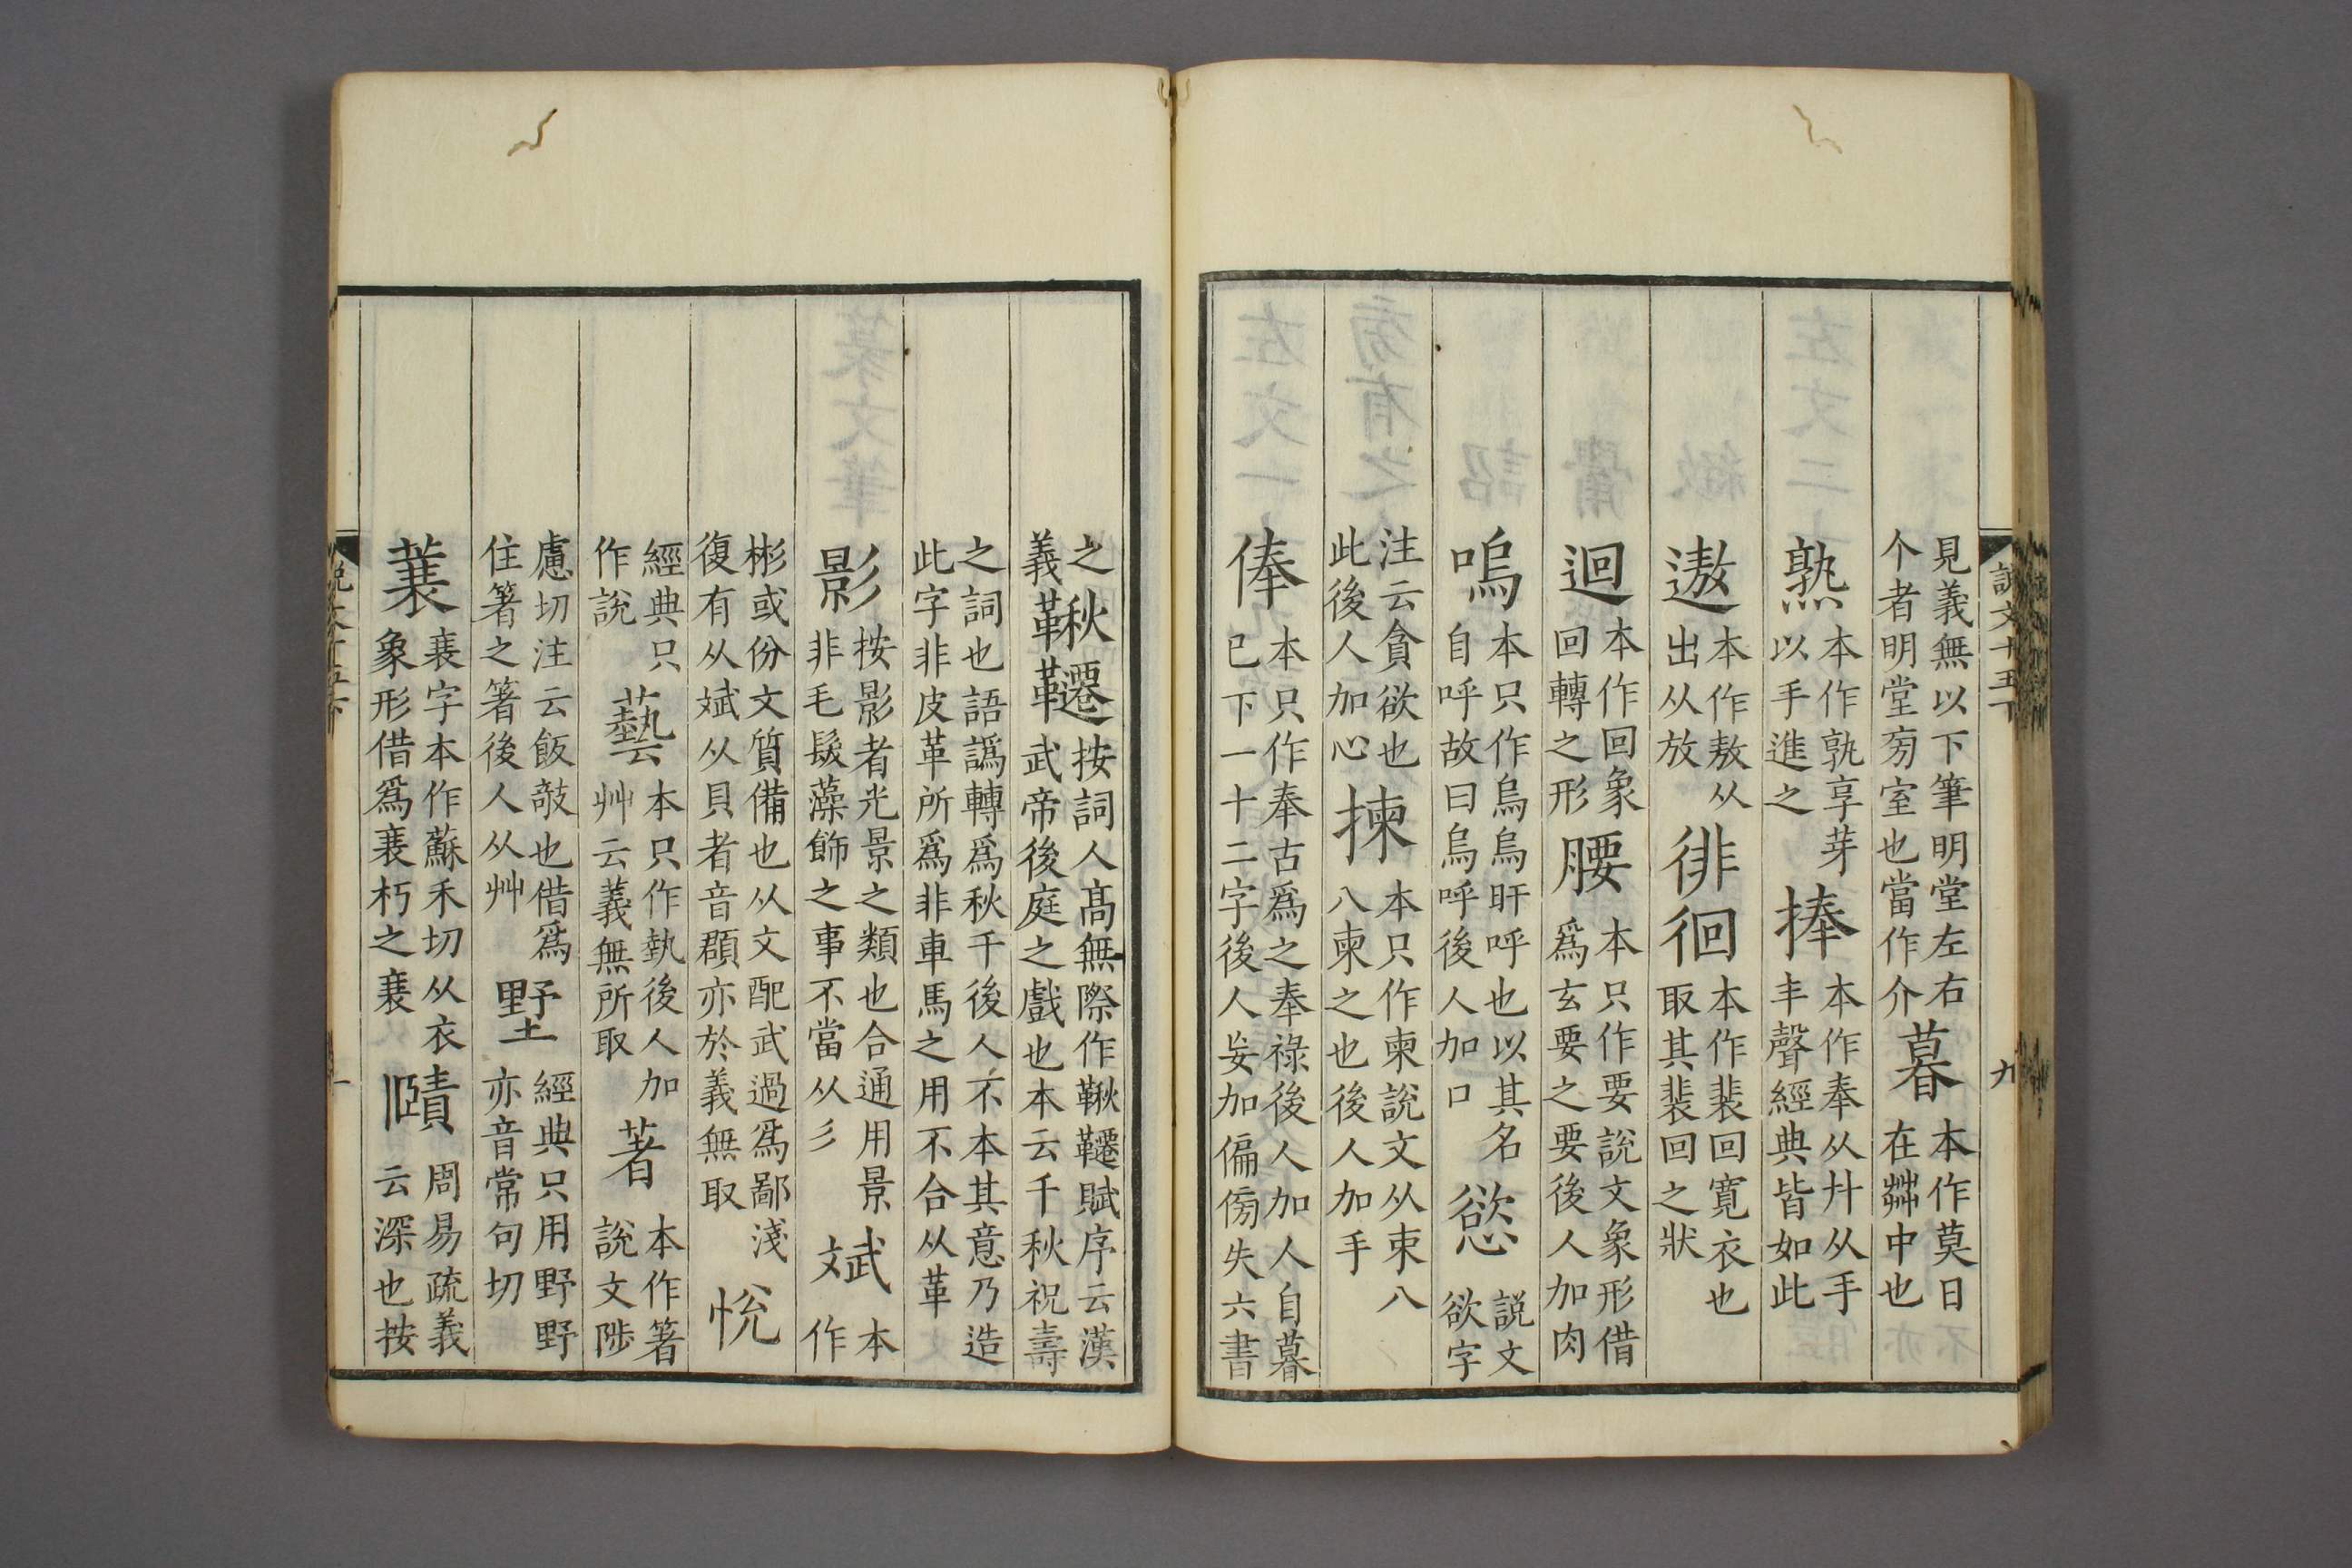 說文十五下
九
見義無以下筆明堂左右
个者明堂旁室也當作介
暮
本作莫日
在茻中也
熟
本作孰享芽
以手進之
捧
本作奉从廾从手
丰聲經典皆如此
遨
本作敖从
出从放
徘徊
本作裴回寬衣也
取其裴回之狀
迴
本作回象
回轉之形
腰
本只作要說文象形借
爲玄要之要後人加肉
嗚
本只作烏烏盱呼也以其名
自呼故曰烏呼後人加口
慾
說文
欲字
注云貪欲也
此後人加心
揀
本只作柬說文从束八
八柬之也後人加手
俸
本只作奉古爲之奉祿後人加人自暮
已下一十二字後人妄加偏傍失六書
之
義
鞦韆
按詞人高無際作鞦韆賦序云漢
武帝後庭之戲也本云千秋祝壽
之詞也語譌轉爲秋千後人不本其意乃造
此字非皮革所爲非車馬之用不合从革
影
按影者光景之類也合通用景
非毛髮藻飾之事不當从彡
斌
本
作
彬或份文質備也从文配武過爲鄙淺
復有从斌从貝者音頵亦於義無取
悅
經典只
作說
藝
本只作埶後人加
艸云義無所取
著
本作箸
說文陟
慮切注云飯攲也借爲
住箸之箸後人从艸
墅
經典只用野野
亦音常句切
蓑
衰字本作蘇禾切从衣
象形借爲衰朽之衰
賾
周易疏義
云深也按
說文十五下